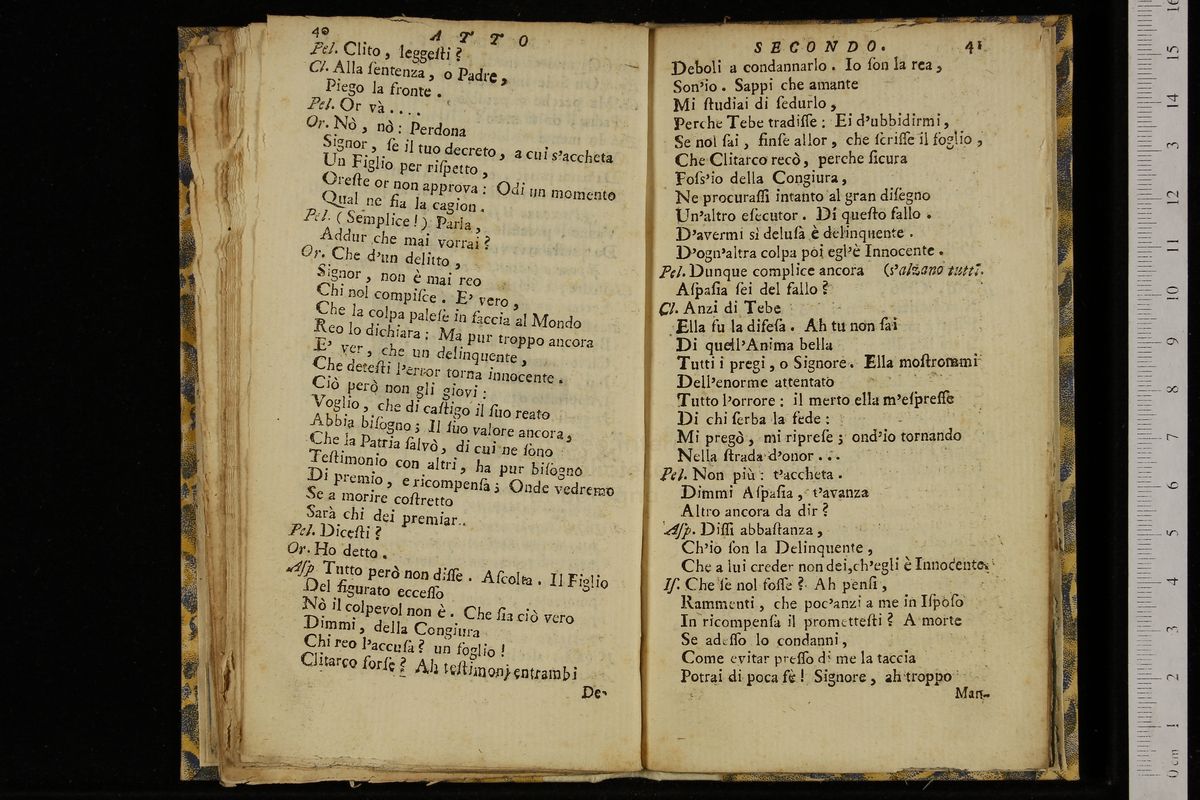 40 ATTO
Pel. Clito, leggeſti?
Cl. Alla ſentenza, o Padre,
Piego la fronte.
Pel. Or và....
Or. Nò, nò: Perdona
Signor, ſe il tuo decreto, a cui s'accheta
Un Figlio per riſpetto,
Oreſte or non approva: Odi un momento
Qual ne ſia la cagion.
Pel. (Semplice!) Parla,
Addur che mai vorrai?
Or. Che d'un delitto,
Signor, non è mai reo
Chi nol compiſce. E' vero,
Che la colpa paleſe in faccia al Mondo
Reo lo dichiara: Ma pur troppo ancora
E' ver, che un delinquente,
Che deteſti l'error torna innocente.
Ciò però non gli giovi:
Voglio, che di caſtigo il ſuo reato
Abbia biſogno; Il ſuo valore ancora,
Che la Patria ſalvò, di cui ne ſono
Teſtimonio con altri, ha pur biſogno
Di premio, e ricompenſa; Onde vedremo
Se a morire coſtretto
Sarà chi dei premiar..
Pel. Diceſti?
Or. Ho detto.
Aſp. Tutto però non diſſe. Aſcolta. Il Figlio
Del figurato ecceſſo
Nò il colpevol non è. Che ſia ciò vero
Dimmi, della Congiura
Chi reo l'accuſa? un foglio!
Clitarco forſe? Ah teſtimonj entrambi
De-
SECONDO. 41
Deboli a condannarlo. Io ſon la rea,
Son'io. Sappi che amante
Mi ſtudiai di ſedurlo,
Perche Tebe tradiſſe: Ei d'ubbidirmi,
Se nol ſai, finſe allor, che ſcriſſe il foglio,
Che Clitarco recò, perche ſicura
Foſs'io della Congiura,
Ne procuraſſi intanto al gran diſegno
Un'altro eſecutor. Di queſto fallo.
D'avermi sì deluſa è delinquente.
D'ogn'altra colpa poi egl'è Innocente.
Pel. Dunque complice ancora (s'alzano tutti.
Aſpaſia ſei del fallo?
Cl. Anzi di Tebe
Ella fu la difeſa. Ah tu non ſai
Di quell'Anima bella
Tutti i pregi, o Signore. Ella moſtrommi
Dell'enorme attentato
Tutto l'orrore: il merto ella m'eſpreſſe
Di chi ſerba la fede:
Mi pregò, mi ripreſe; ond'io tornando
Nella ſtrada d'onor...
Pel. Non più: t'accheta.
Dimmi Aſpaſia, t'avanza
Altro ancora da dir?
Aſp. Diſſi abbaſtanza,
Ch'io ſon la Delinquente,
Che a lui creder non dei, ch'egli è Innocente.
Iſ. Che ſe nol foſſe? Ah penſi,
Rammenti, che poc'anzi a me in Iſpoſo
In ricompenſa il prometteſti? A morte
Se adeſſo lo condanni,
Come evitar preſſo di me la taccia
Potrai di poca fè! Signore, ah troppo
Man-
0 cm 1 2 3 4 5 6 7 8 9 10 11 12 3 14 15 16